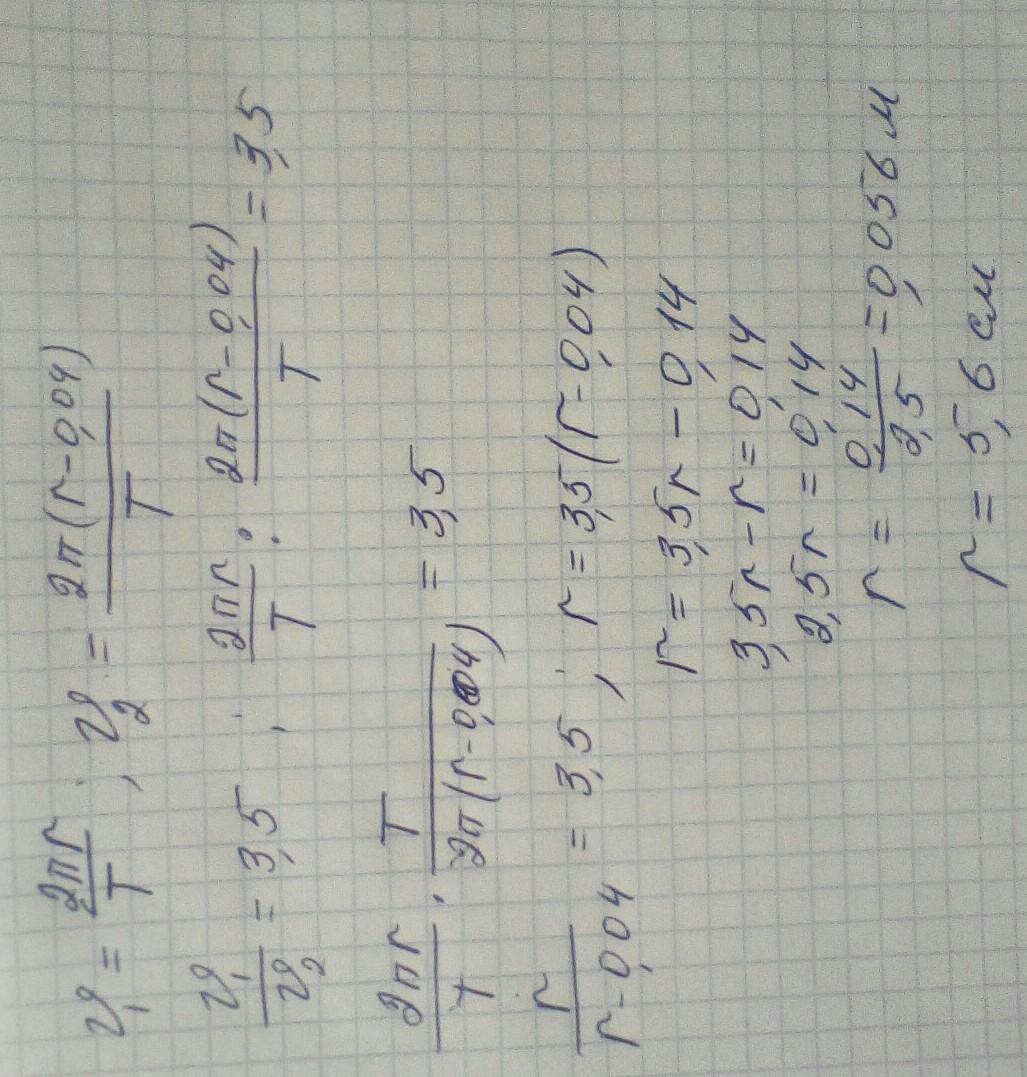 υ₁ = 2πr/T ; υ₂ = 2π(r-0,04)/T
υ₁/υ₂ = 3,5 ; 2πr/T : 2π(r-0,04)/T = 3,5
2πr/T · T/2π(r-0,04) = 3,5
r/r-0,04 = 3,5 ; r = 3,5(r-0,04)
r = 3,5r - 0,14
3,5r - r = 0,14
2,5r = 0,14
r = 0,14/2,5 = 0,056 м
r = 5,6 см